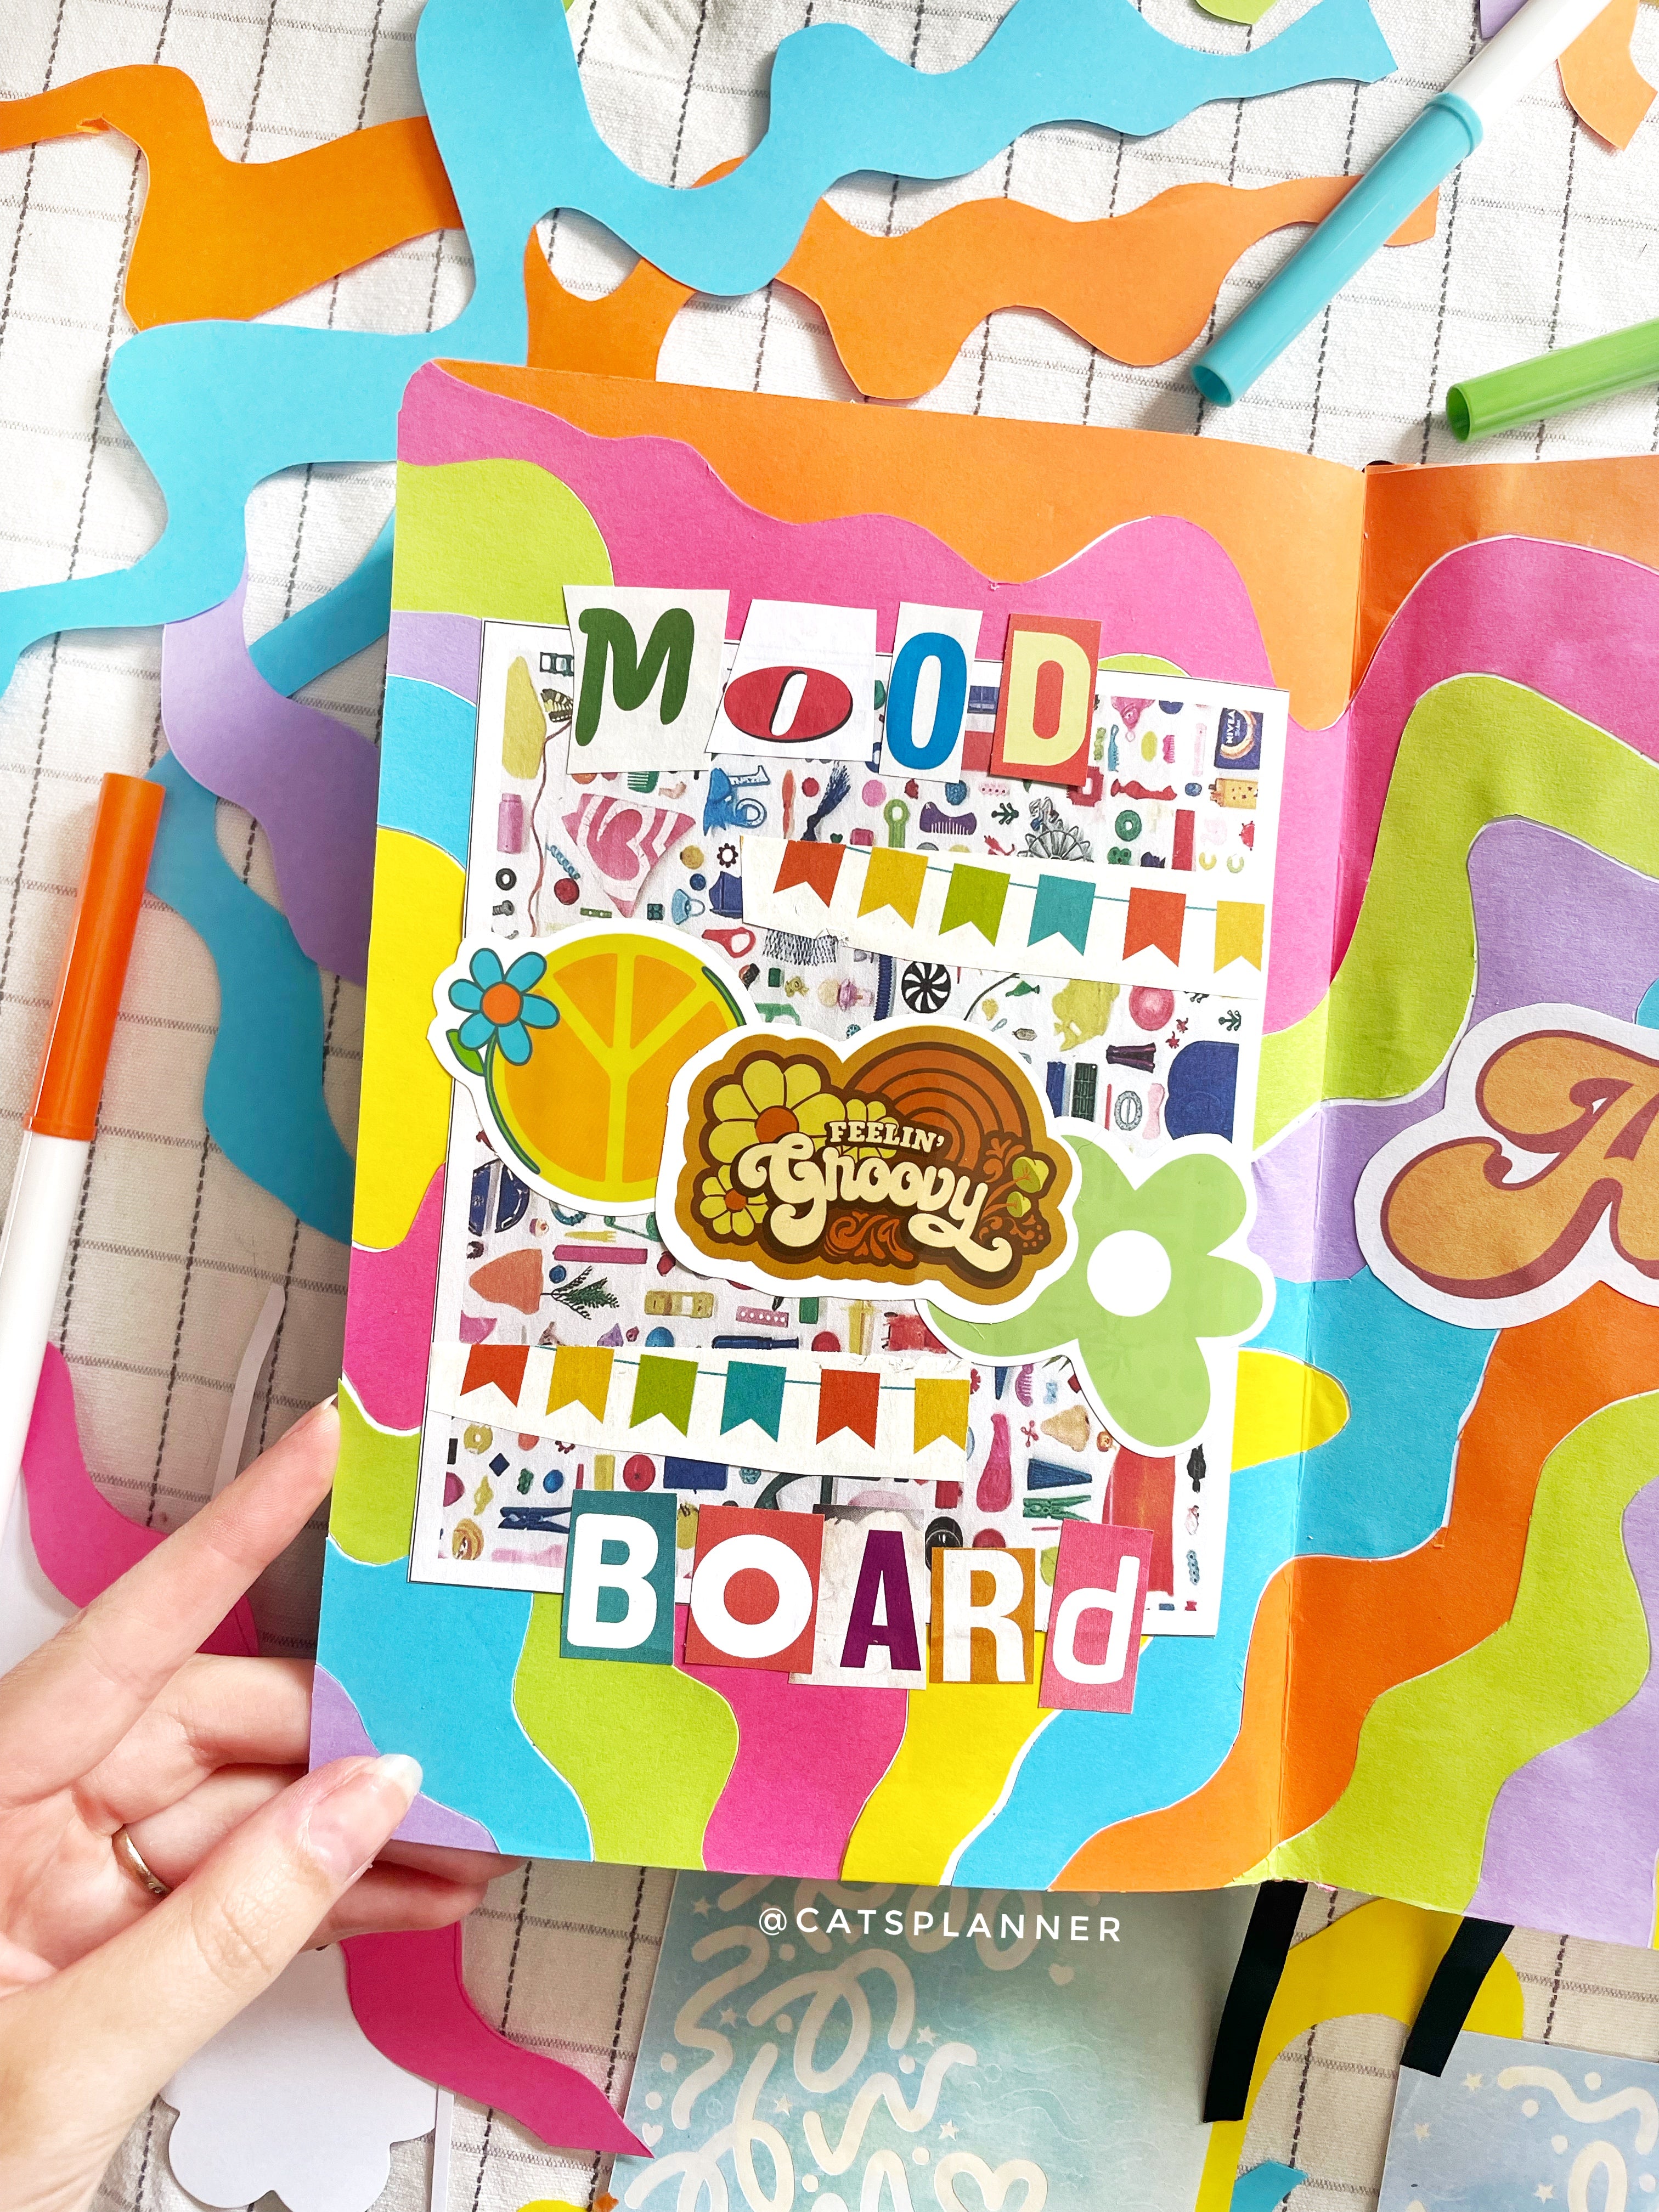 MOOD
NIVEA
FEELIN'
Groovy
A
BOARd
@CATSPLANNER